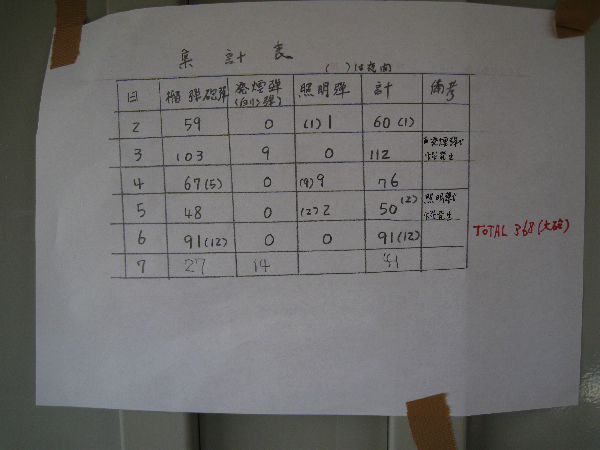 集計表
( )は夜間
日 榴弾砲弾 発煙弾(白リン弾) 照明弾 計 備考
2 59 0 (1)1 60(1)
3 103 9 0 112
4 67(5) 0 (9)9 76
5 48 0 (2)2 50(2)
6 91(12) 0 0 91(12)
7 27 14 41
TOTAL 368